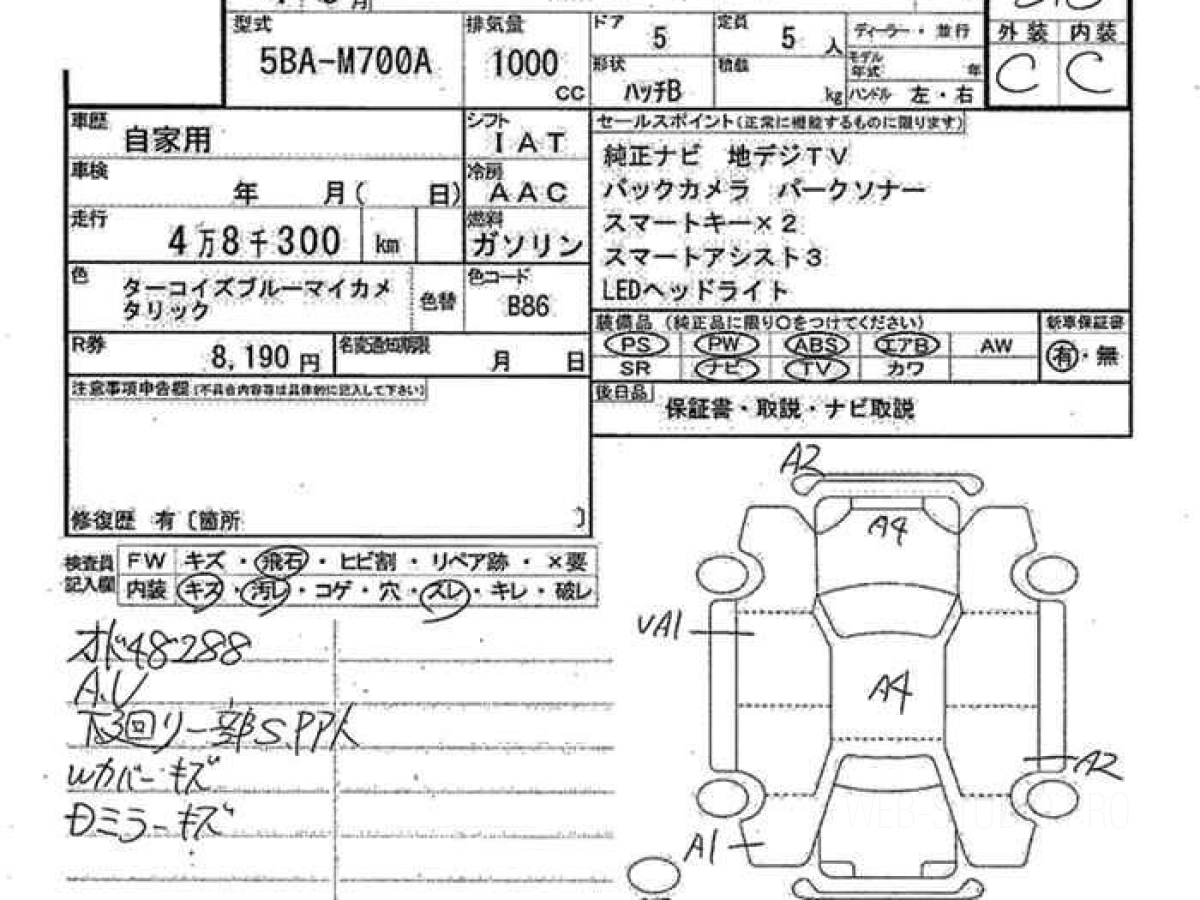 型式 5BA-M700A 排気量 1000 CC ドア 5 定員 5 人 ディーラー・並行 外装 内装
形状 ハッチB 積載 kg モデル年式 年 C C
ハンドル 左・右
車歴 自家用 シフト IAT
車検 年 月( 日) 冷房 AAC
走行 4万8千300 km 燃料 ガソリン
色 ターコイズブルーマイカメ
タリック 色替 色コード B86
R券 8,190 円 名変通知期限 月 日
注意事項申告欄(不具合内容等は具体的に記入して下さい)
修復歴 有〔箇所 〕
セールスポイント(正常に機能するものに限ります)
純正ナビ 地デジTV
バックカメラ パークソナー
スマートキー×2
スマートアシスト3
LEDヘッドライト
装備品 (純正品に限り○をつけてください) 新車保証書
PS PW ABS エアB AW 有・無
SR ナビ TV カワ
後日品 保証書・取説・ナビ取説
検査員記入欄 FW キズ・飛石・ヒビ割・リペア跡・×要
内装 キズ・汚レ・コゲ・穴・スレ・キレ・破レ
オド48288
A.U
下回り一部S.PP人
Wカバーキズ
Dミラーキズ
A2
A4
UA1
A4
A2
A1